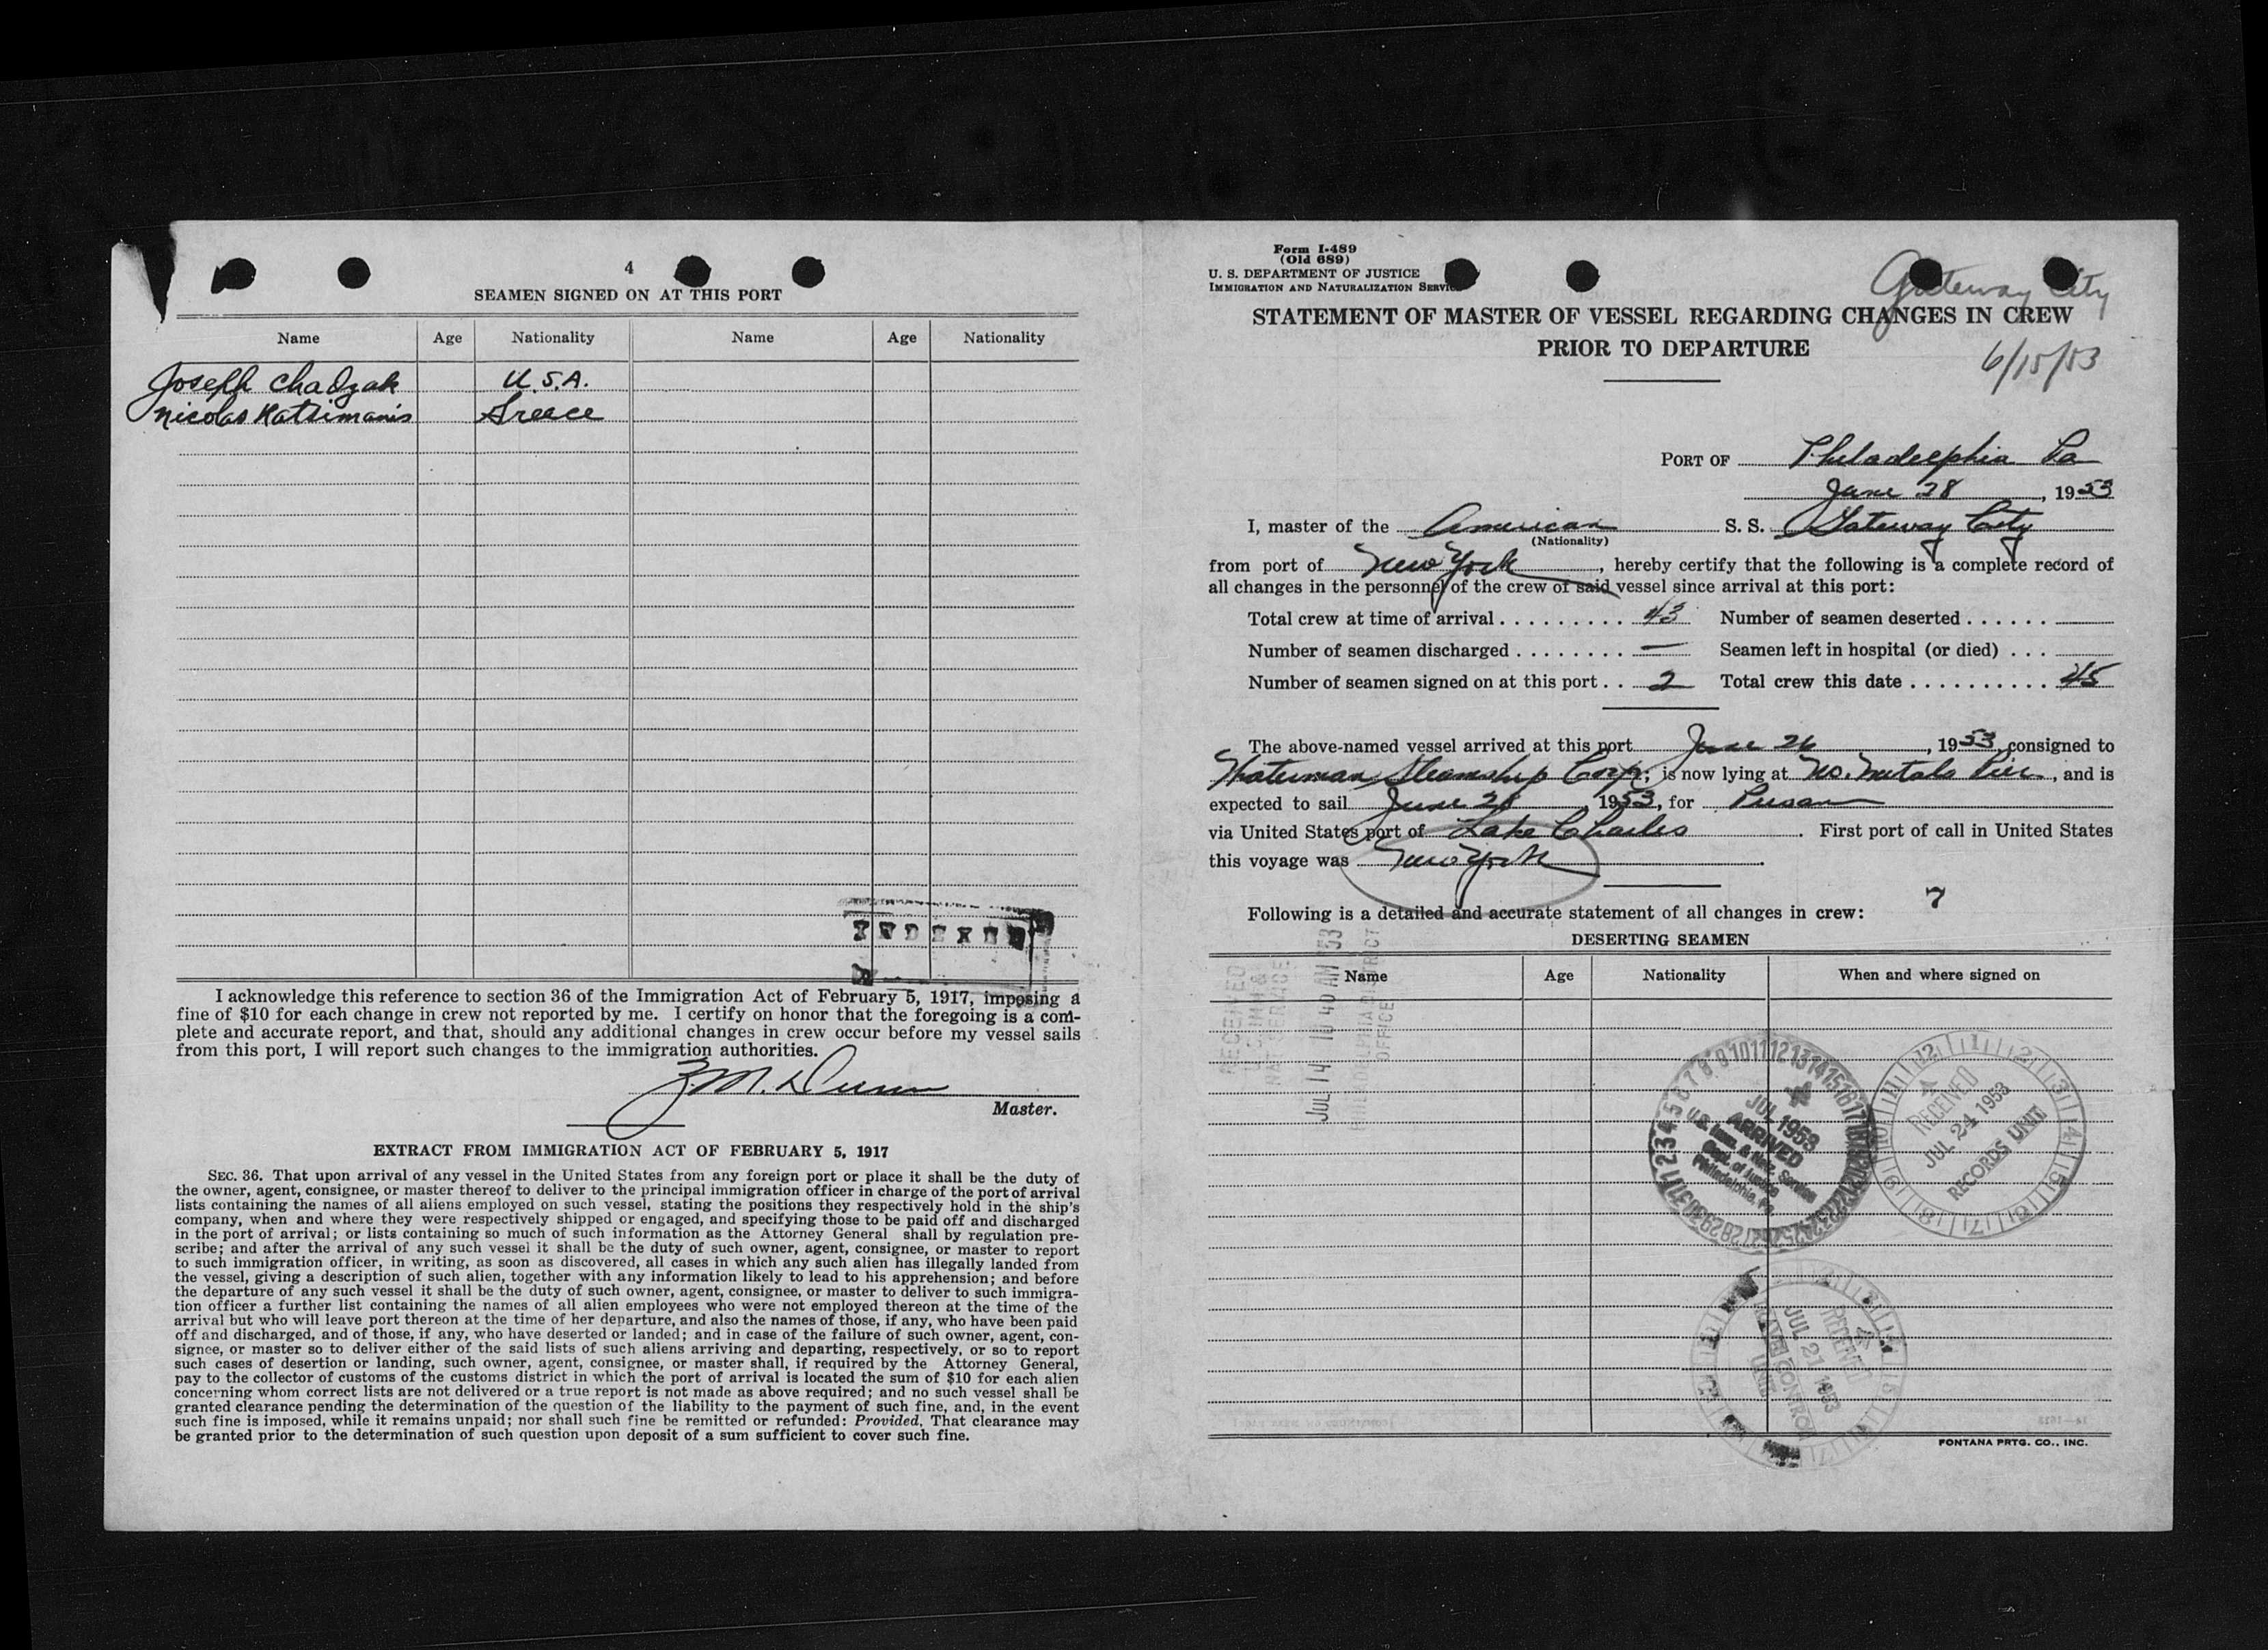 4
SEAMEN SIGNED ON AT THIS PORT
Name Age Nationality Name Age Nationality
Joseph Chadzak U.S.A.
Nicolas Katsimanis Greece
INDEXED
I acknowledge this reference to section 36 of the Immigration Act of February 5, 1917, imposing a
fine of $10 for each change in crew not reported by me. I certify on honor that the foregoing is a com-
plete and accurate report, and that, should any additional changes in crew occur before my vessel sails
from this port, I will report such changes to the immigration authorities.
Z.M. Dunn
Master.
EXTRACT FROM IMMIGRATION ACT OF FEBRUARY 5, 1917
SEC. 36. That upon arrival of any vessel in the United States from any foreign port or place it shall be the duty of
the owner, agent, consignee, or master thereof to deliver to the principal immigration officer in charge of the port of arrival
lists containing the names of all aliens employed on such vessel, stating the positions they respectively hold in the ship's
company, when and where they were respectively shipped or engaged, and specifying those to be paid off and discharged
in the port of arrival; or lists containing so much of such information as the Attorney General shall by regulation pre-
scribe; and after the arrival of any such vessel it shall be the duty of such owner, agent, consignee, or master to report
to such immigration officer, in writing, as soon as discovered, all cases in which any such alien has illegally landed from
the vessel, giving a description of such alien, together with any information likely to lead to his apprehension; and before
the departure of any such vessel it shall be the duty of such owner, agent, consignee, or master to deliver to such immigra-
tion officer a further list containing the names of all alien employees who were not employed thereon at the time of the
arrival but who will leave port thereon at the time of her departure, and also the names of those, if any, who have been paid
off and discharged, and of those, if any, who have deserted or landed; and in case of the failure of such owner, agent, con-
signee, or master so to deliver either of the said lists of such aliens arriving and departing, respectively, or so to report
such cases of desertion or landing, such owner, agent, consignee, or master shall, if required by the Attorney General,
pay to the collector of customs of the customs district in which the port of arrival is located the sum of $10 for each alien
concerning whom correct lists are not delivered or a true report is not made as above required; and no such vessel shall be
granted clearance pending the determination of the question of the liability to the payment of such fine, and, in the event
such fine is imposed, while it remains unpaid; nor shall such fine be remitted or refunded: Provided, That clearance may
be granted prior to the determination of such question upon deposit of a sum sufficient to cover such fine.
Form I-489
(Old 689)
U. S. DEPARTMENT OF JUSTICE
IMMIGRATION AND NATURALIZATION SERVICE
Gateway City
STATEMENT OF MASTER OF VESSEL REGARDING CHANGES IN CREW
PRIOR TO DEPARTURE
6/15/53
PORT OF Philadelphia Pa
June 28, 1953
I, master of the American S. S. Gateway City
(Nationality)
from port of New York, hereby certify that the following is a complete record of
all changes in the personnel of the crew of said vessel since arrival at this port:
Total crew at time of arrival . . . . . . . . . 43 Number of seamen deserted . . . . . .
Number of seamen discharged . . . . . . . . — Seamen left in hospital (or died) . . .
Number of seamen signed on at this port . . 2 Total crew this date . . . . . . . . . . 45
The above-named vessel arrived at this port June 26, 1953, consigned to
Waterman Steamship Corp; is now lying at US. Metals Pier, and is
expected to sail June 28, 1953, for Pusan
via United States port of Lake Charles. First port of call in United States
this voyage was New York
7
Following is a detailed and accurate statement of all changes in crew:
DESERTING SEAMEN
Name Age Nationality When and where signed on
RECEIVED
JUL 14 10 40 AM '53
PHILADELPHIA DISTRICT
OFFICE
JUL 1953
ARRIVED
U.S. Imm. & Natz. Service
Dept. of Justice
Philadelphia, Pa.
RECEIVED
JUL 24 1953
RECORDS UNIT
RECEIVED
JUL 21 1953
CONTROL
UNIT
FONTANA PRTG. CO., INC.